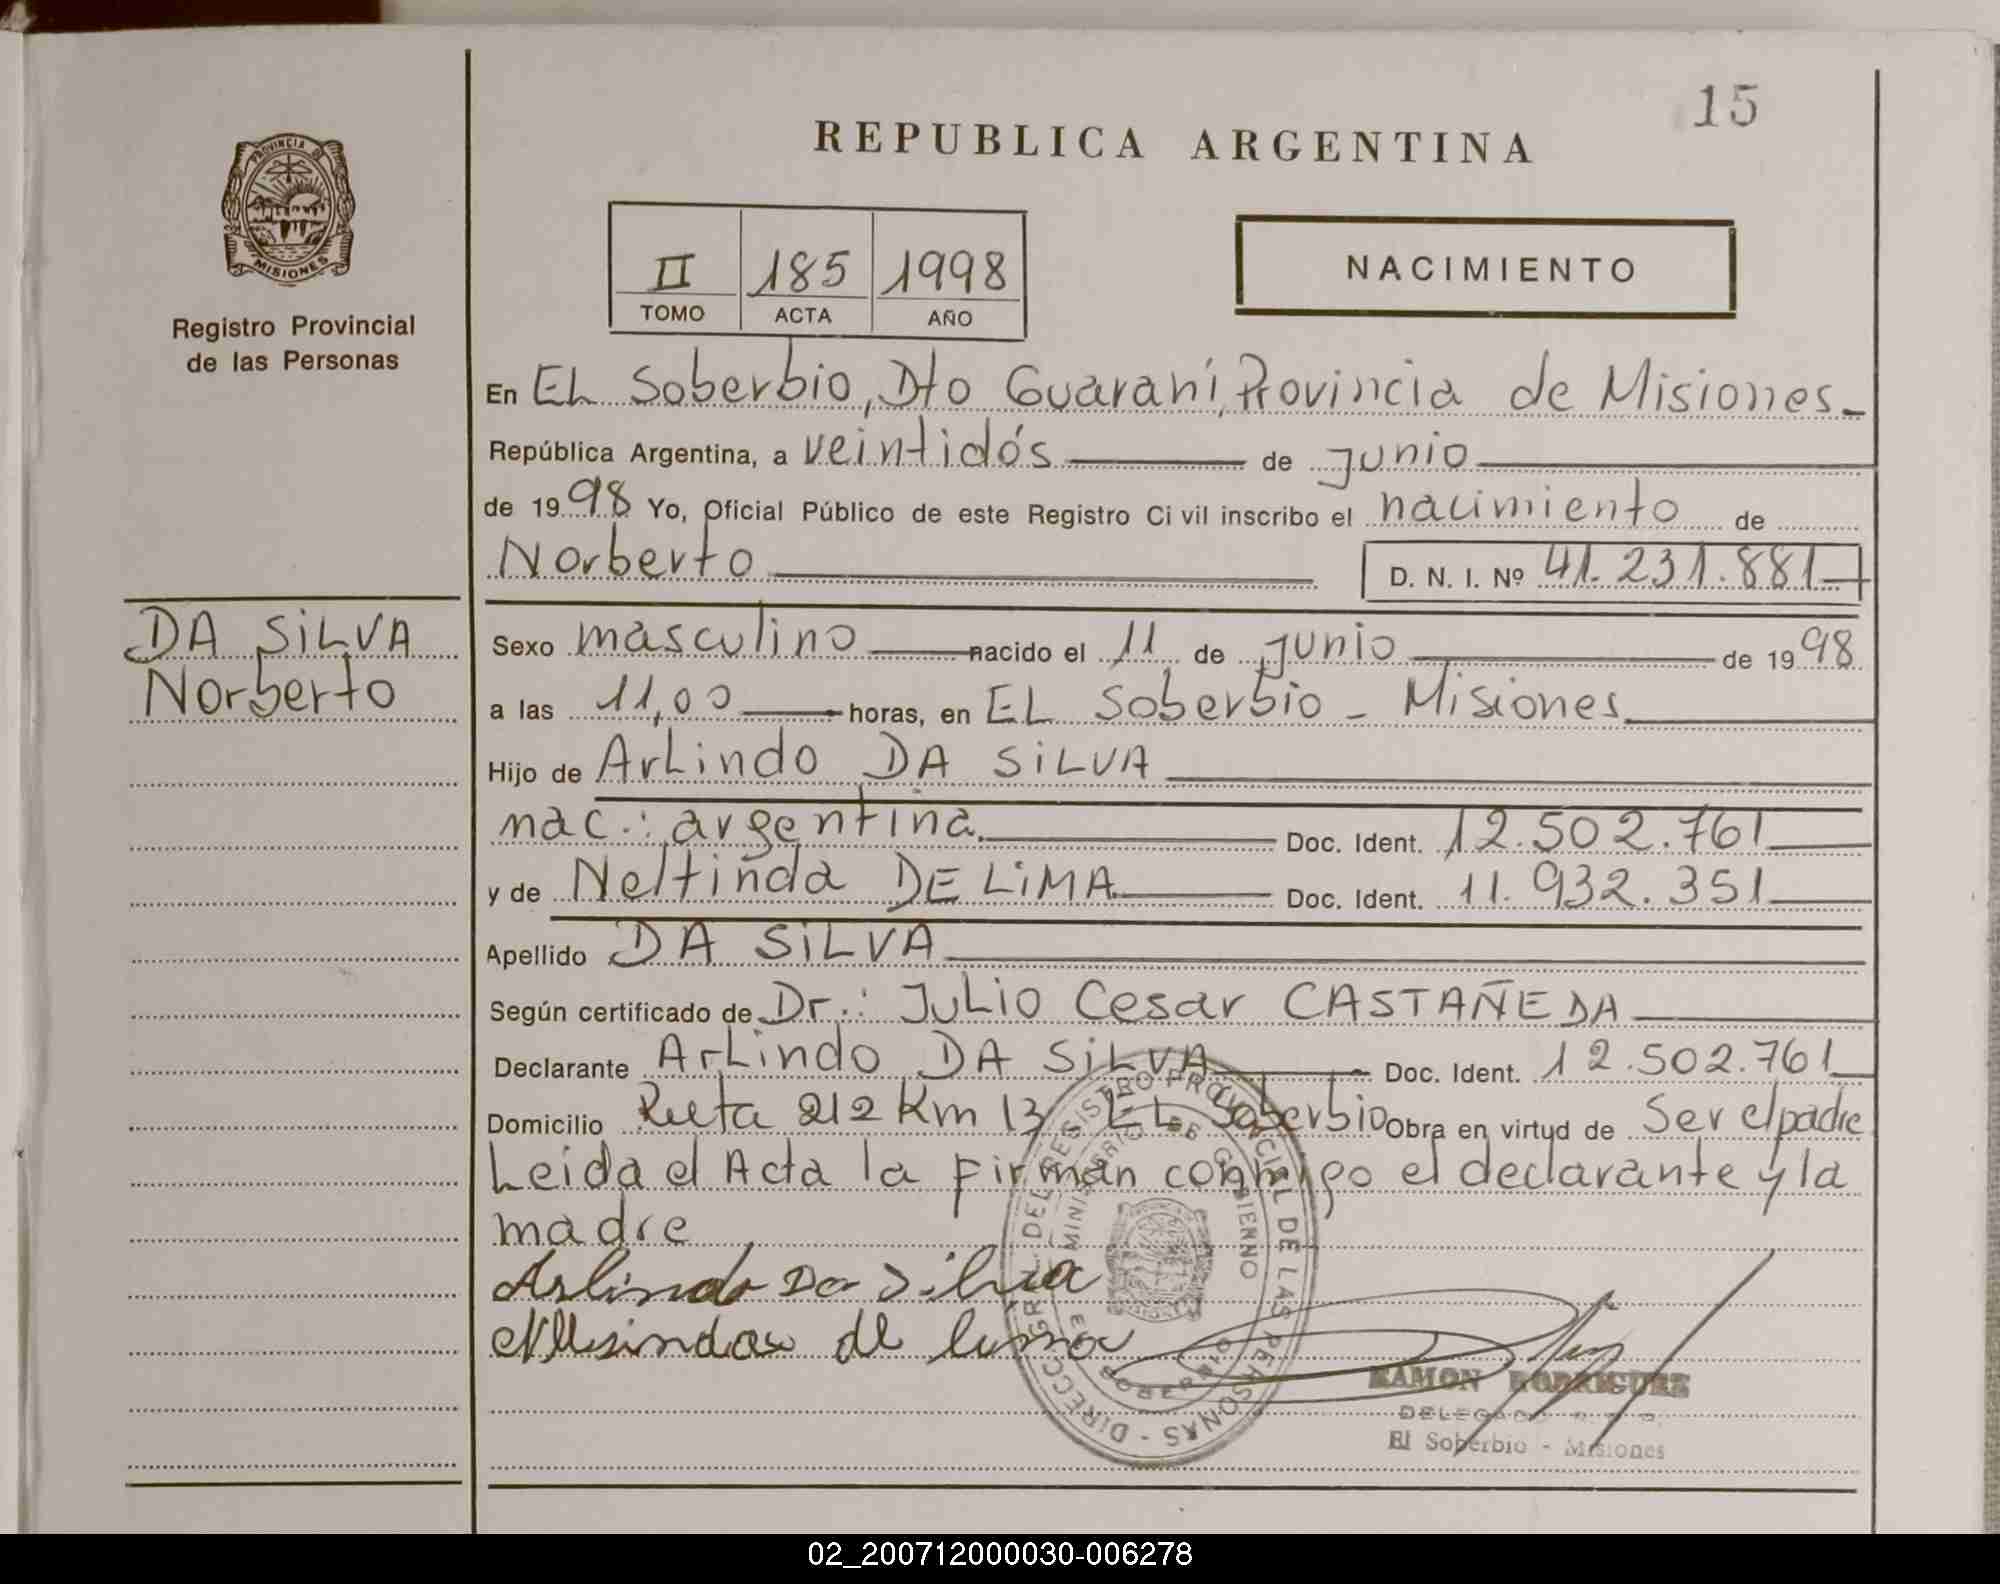 15
REPUBLICA ARGENTINA
PROVINCIA DE
MISIONES
Registro Provincial
de las Personas
II 185 1998
TOMO ACTA AÑO
NACIMIENTO
En EL Soberbio, Dto Guaraní, Provincia de Misiones
República Argentina, a veintidós de junio
de 1998 Yo, Oficial Público de este Registro Civil inscribo el nacimiento de
Norberto D. N. I. Nº 41.231.881
DA SiLVA
Norberto
Sexo masculino nacido el 11 de junio de 1998
a las 11,00 horas, en EL Soberbio - Misiones
Hijo de ArLindo DA SiLVA
nac.: argentina. Doc. Ident. 12.502.761
y de Neltinda DE LiMA Doc. Ident. 11.932.351
Apellido DA SiLVA
Según certificado de Dr.: JuLio Cesar CASTAÑEDA
Declarante ArLindo DA SiLVA Doc. Ident. 12.502.761
Domicilio Ruta 212 Km 13 EL Soberbio Obra en virtud de Ser el padre
Leida el Acta la firman conmigo el declarante y la
madre
Arlindo Da Silva
de lima
DIRECC. GRAL. DEL REGISTRO PROVINCIAL DE LAS PERSONAS
MINISTERIO DE GOBIERNO
EL SOBERBIO
RAMON RODRIGUEZ
DELEGADO
El Soberbio - Misiones
02_200712000030-006278